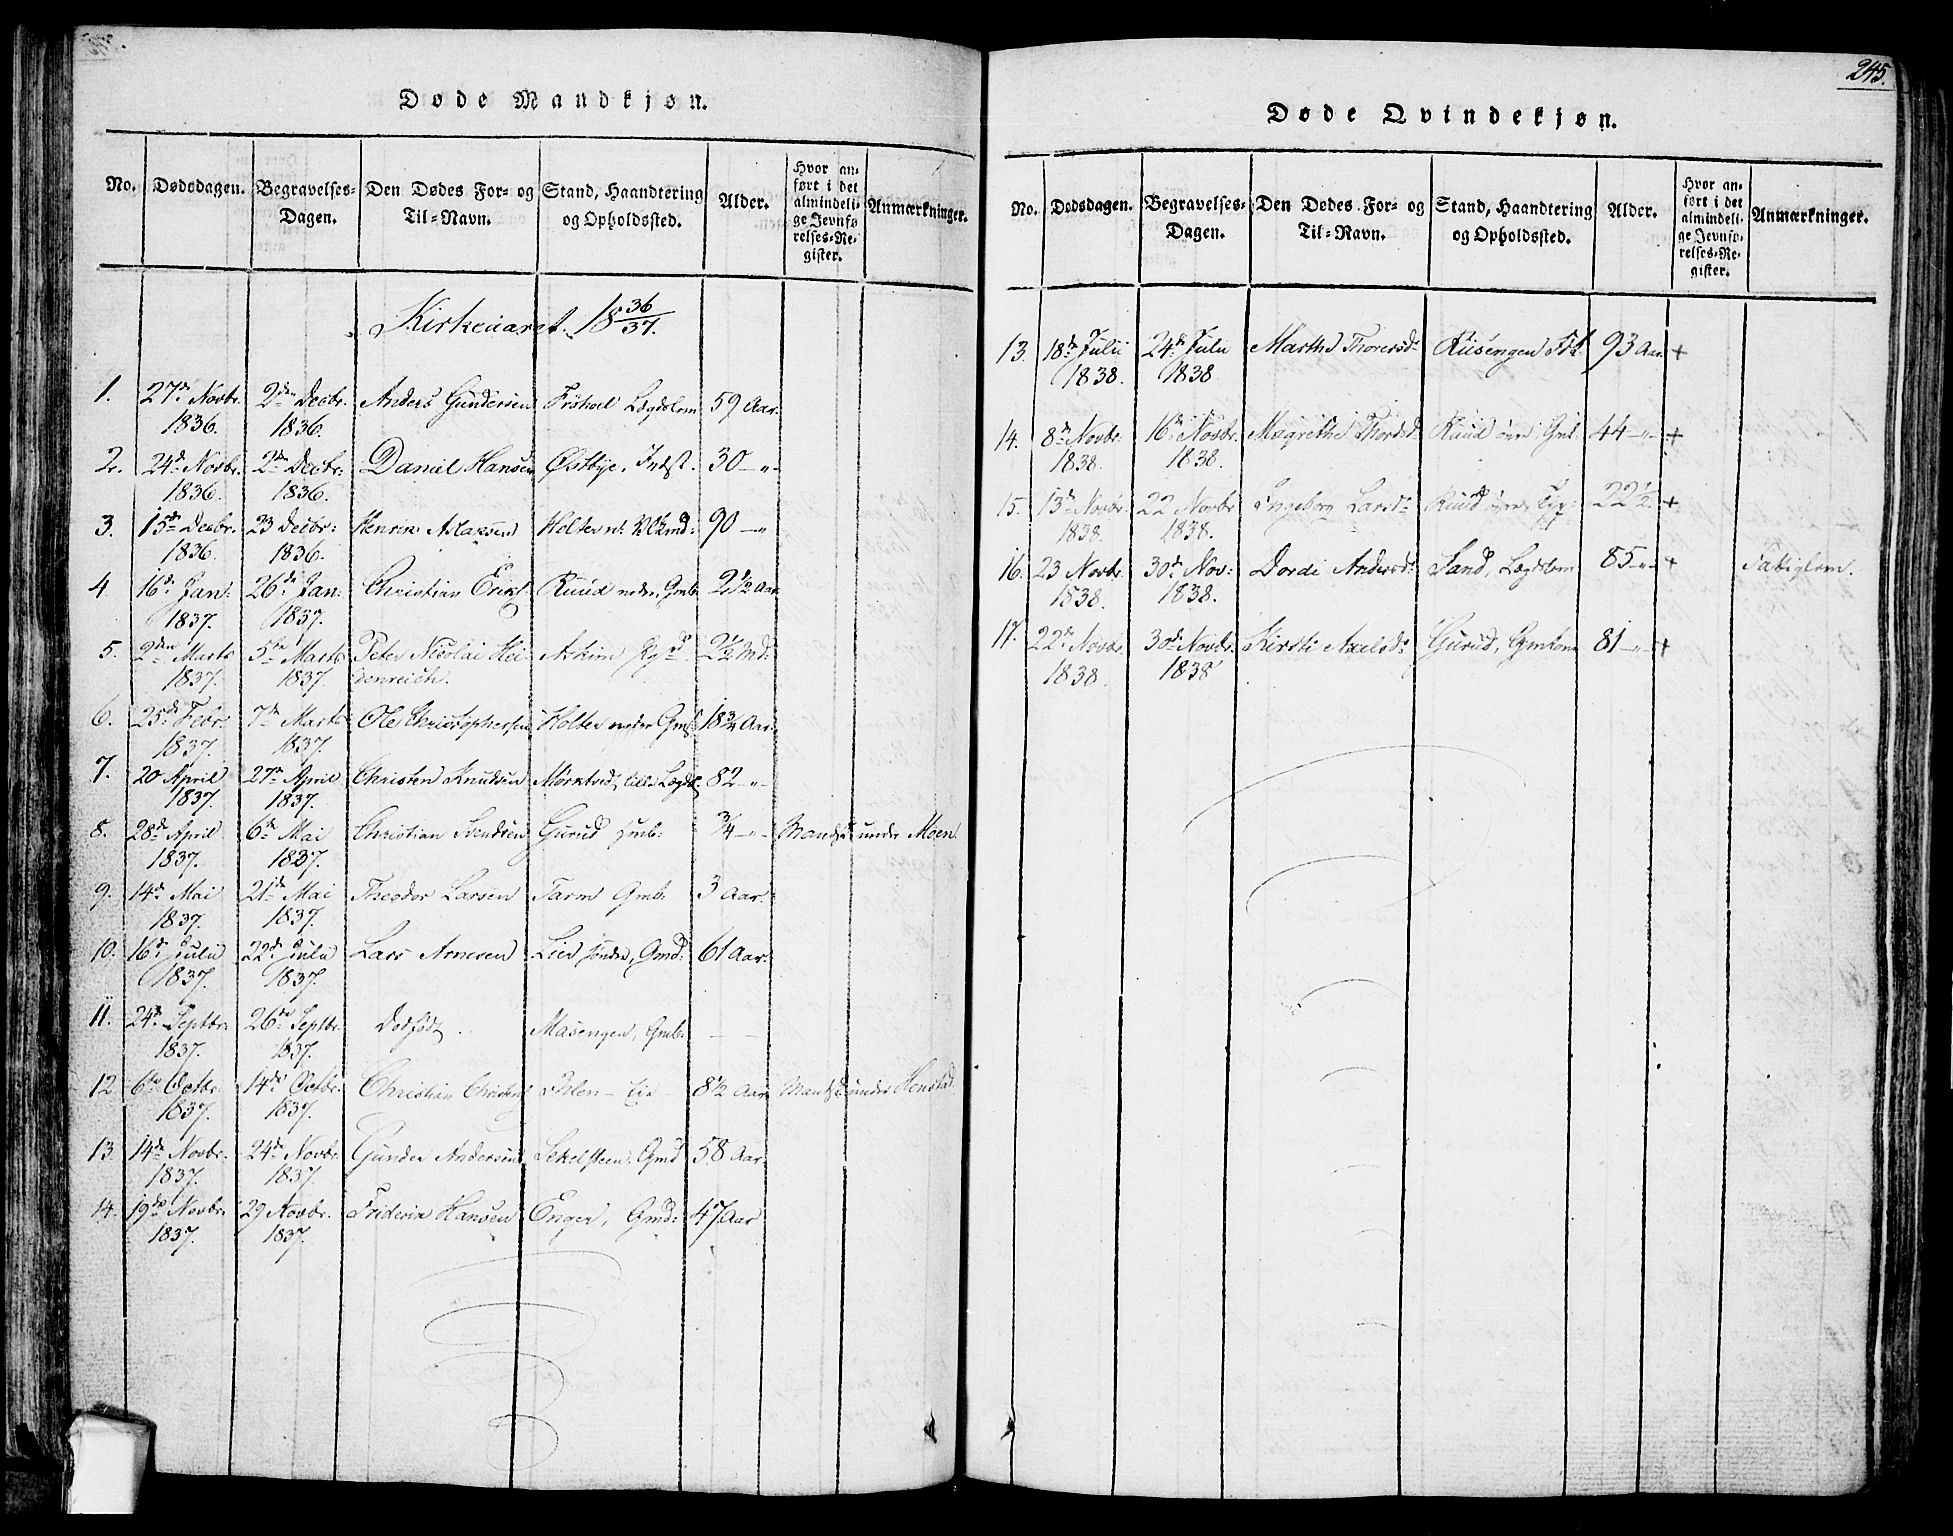 Døde Mandkjøn.
No. Dødsdagen. Begravelses-Dagen. Den Dødes For- og Til-Navn. Stand, Haandtering og Opholdssted. Alder. Hvor anført i det almindelige Jevnførelses-Register. Anmærkninger.
Kirkeaaret 18 36/37.
1. 27de Novbr. 2den Decbr. Anders Gundersen Lægdslem 59 Aar.
1836. 1836.
2. 24de Novbr. 2den Decbr. Daniel Hansen Østbye, Indst. 30 –"–
1836. 1836.
3. 15de Decbr. 23 Decbr: Henrik Aslaksen Holter 90 –"
1836. 1836.
4 16de Jan: 26de Jan: Christian Eriks Ruud neder, Gmb 2 1/2 Aar
1837. 1837.
5. 2den Marts 5te Marts Peter Nicolai Hei- Askim 2 1/2 Md:
1837. 1837. denreich.
6. 25de Febr. 7de Marts Ole Christophersen Holter neder Gmb 18 3/4 Aar.
1837. 1837.
7. 20 April 27de April Christen Knudsen Mørktvedt lille Lægdsl. 82 –"–
1837. 1837.
8. 28de April 6te Mai Christian Svendsen Gurud Hmb: 3/4 –"– under Moen
1837. 1837.
9. 14de Mai 21de Mai Theodor Larsen Tarm Gmb: 3 Aar.
1837. 1837.
10. 16de Julii 22de Julii Lars Arnesen Lier søndre, Gmd: 61 Aar.
1837. 1837.
11. 24de Septbr. 26de Septbr. Dødfødt. Masengen, Gmb. – –
1837. 1837.
12. 6te Octbr. 14de Octbr. Christian Christens 8 1/2 Aar under Henstad.
1837. 1837.
13. 14de Novbr. 24de Novbr. Gunder Andersen Sekelsteen. Gmd 58 Aar.
1837. 1837.
14. 19de Novbr. 29 Novbr. Friderik Hansen Enger, Gmd: 47 Aar
1837. 1837.
245.
Døde Qvindekjøn.
No. Dødsdagen. Begravelses-Dagen. Den Dødes For- og Til-Navn. Stand, Haandtering og Opholdssted. Alder. Hvor anført i det almindelige Jevnførelses-Register. Anmærkninger.
13. 18de Julii 24de Julii Marthe Thorersd: Riisengen 93 Aar +
1838. 1838
14. 8de Novbr. 16de Novbr. Magrethe Thordsd: Ruud 44 –"– +
1838. 1838.
15. 13de Novbr. 22 Novbr Ingeborg Larsd: Ruud 22 1/2 +
1838. 1838.
16. 23 Novbr. 30de Nov: Dordi Andersd: Sand, Lægdslem 85 –"– + Fattiglem.
1838. 1838.
17. 22de Novbr. 30de Novbr. Kirsti Axelsd: Gurud, Gmkone 81 –"– +
1838. 1838